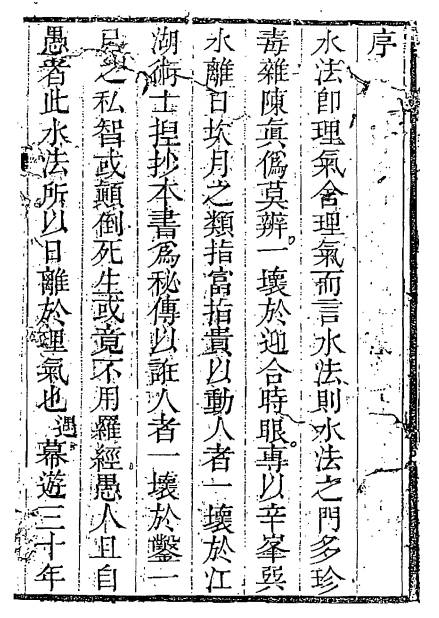 序
水法卽理氣舍理氣而言水法則水法之門多珍
毒雜陳眞僞莫辨。一壞於迎合時眼。專以辛峯巽
水離日坎月之類指富指貴以動人者一壞於江
湖術士捏抄本書爲秘傳以誑人者一壞於鑿一
己之私智或顛倒死生或竟不用羅經愚人且自
愚者此水法所以日離於理氣也遇幕遊三十年